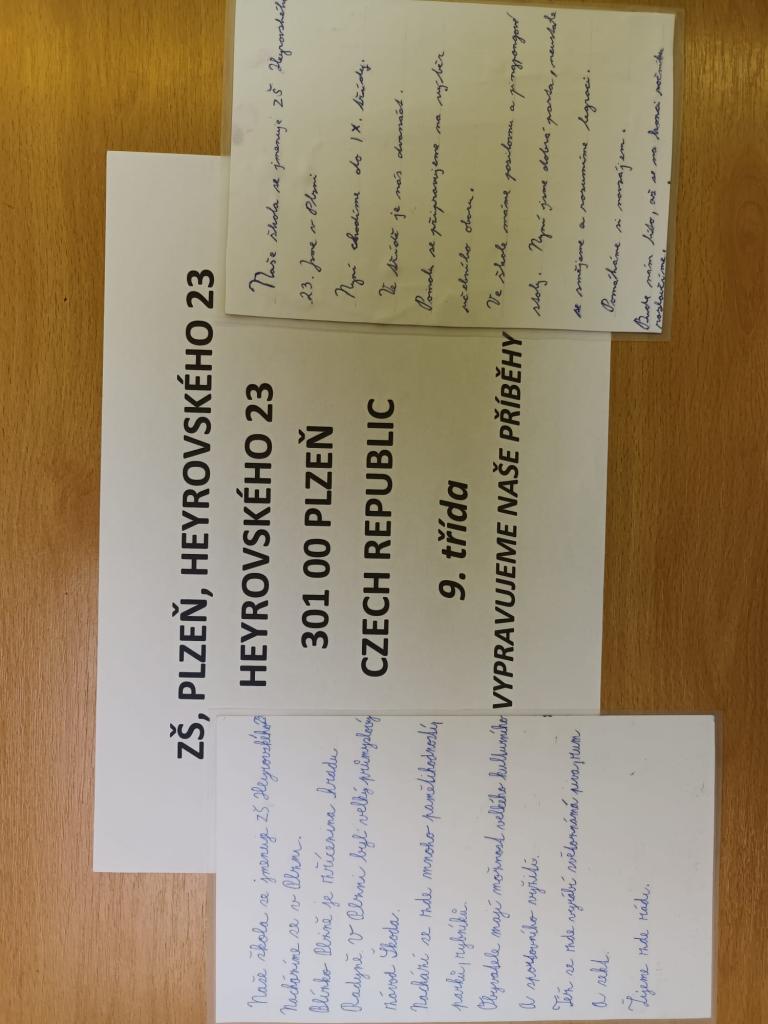 Naše škola se jmenuje ZŠ Heyrovského
Nacházíme se v Plzni.
Blízko Plzně je zřícenina hradu
Radyně V Plzni byl velký průmyslový
závod Škoda.
Nachází se zde mnoho pamětihodností,
parků, rybníků.
Obyvatelé mají možnost velkého kulturního
a sportovního vyžití.
Též se zde vyrábí světoznámá pivo, rum
a sekt.
Žijeme zde rádi.
ZŠ, PLZEŇ, HEYROVSKÉHO 23
HEYROVSKÉHO 23
301 00 PLZEŇ
CZECH REPUBLIC
9. třída
VYPRAVUJEME NAŠE PŘÍBĚHY
Naše škola se jmenuje ZŠ Heyrovského
23. Jsme v Plzni
Nyní chodíme do IX. třídy.
Ve třídě je nás dvanáct.
Pomalu se připravujeme na výběr
učebního oboru.
Ve škole máme posilovnu a pingpongové
stoly. Nyní jsme dobrá parta, neustále
se smějeme a rozumíme legraci.
Pomáháme si navzájem.
Bude nám líto, až se na konci ročníku
rozloučíme.